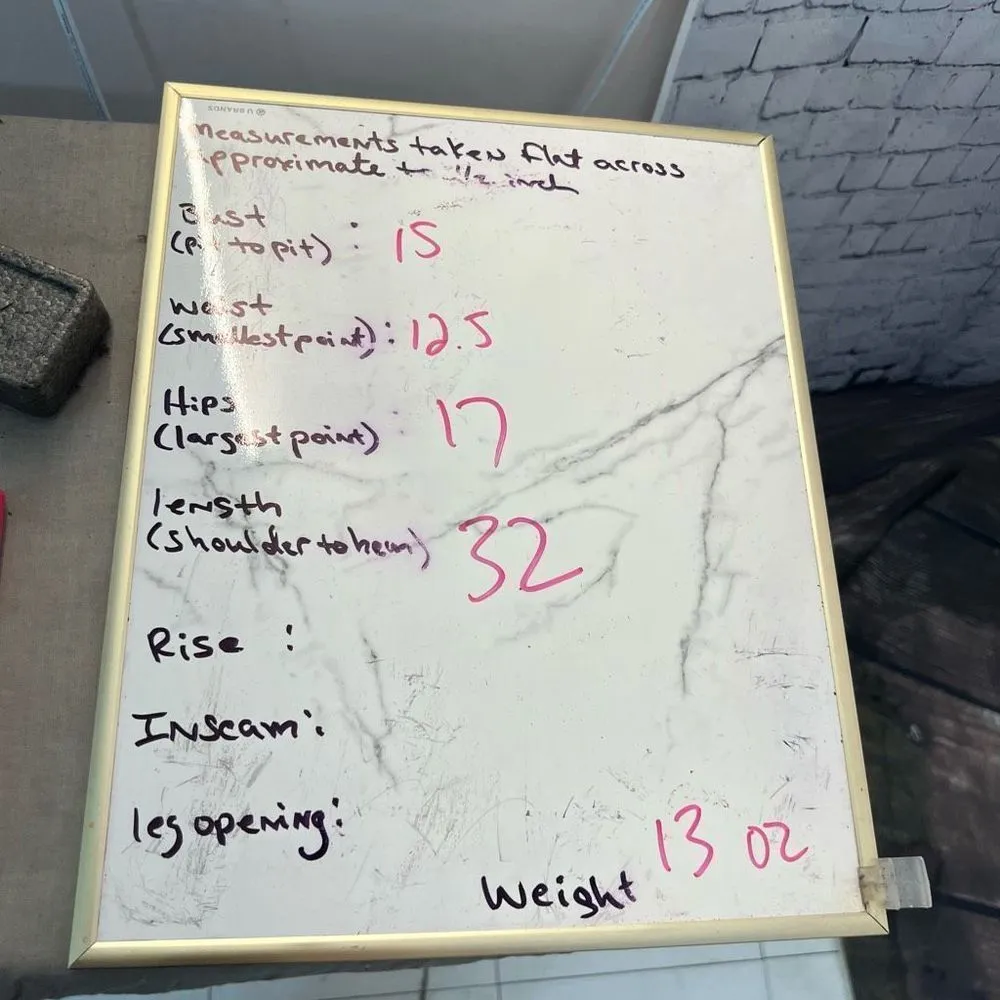 U BRANDS
measurements taken flat across
approximate to 1/2 inch
Bust
(pit to pit) : 15
Waist
(smallest point) : 12.5
Hips
(largest point) : 17
length
(shoulder to hem) 32
Rise :
Inseam :
leg opening :
13 oz
Weight